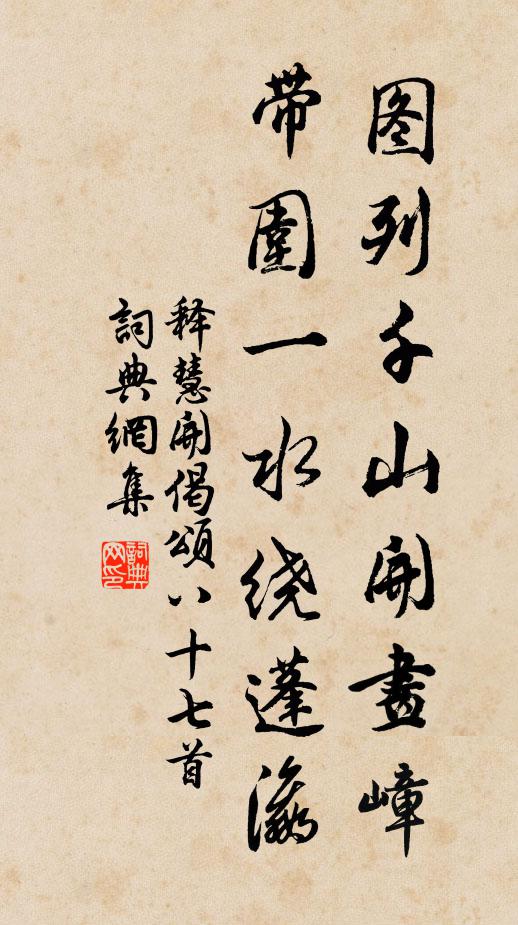 图列千山開畫嶂
带圍一水绕蓬瀛
释慧開偈頌八十七首
詞典網集
詞典网印